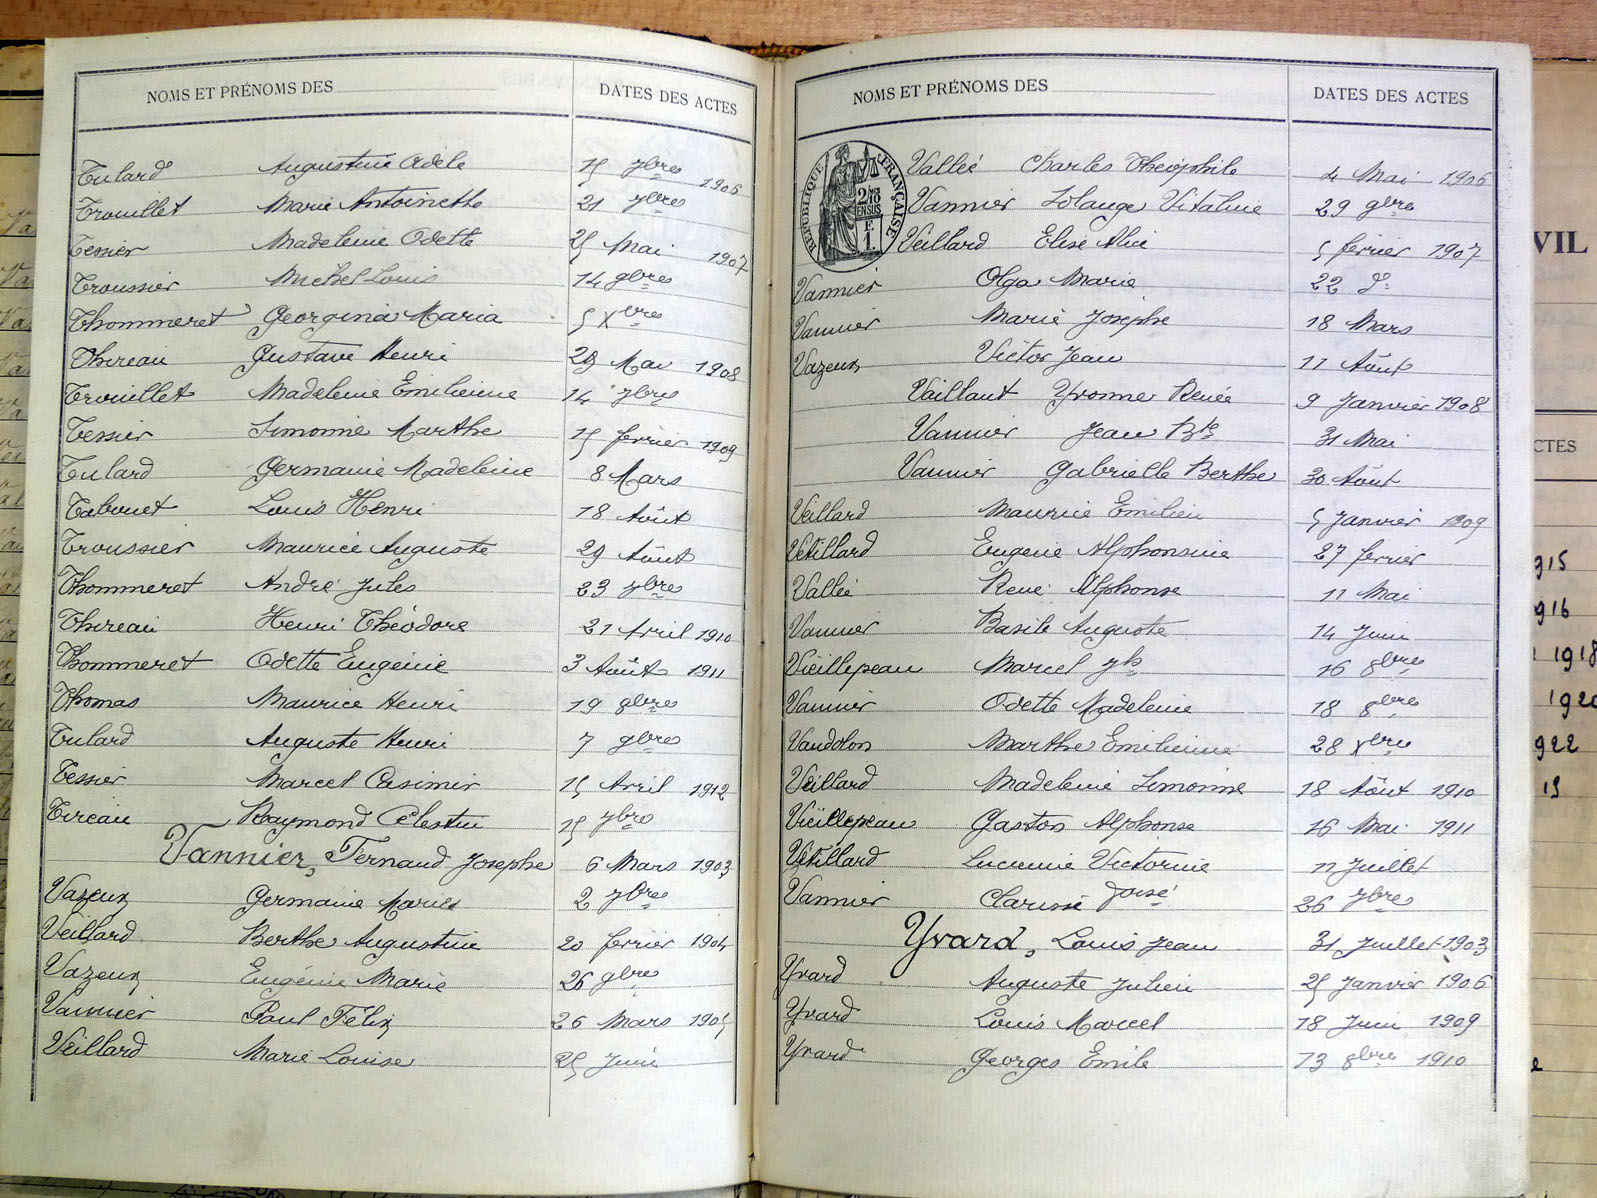 NOMS ET PRÉNOMS DES
DATES DES ACTES
Tulard Augustine Adèle 15 7bres 1906
Trouillet Marie Antoinette 21 7bres
Tessier Madeleine Odette 25 Mai 1907
Troussier Michel Louis 14 9bres
Thommeret Georgina Maria 5 Xbres
Thireau Gustave Henri 29 Mai 1908
Trouillet Madeleine Emilienne 14 7bres
Tessier Simonne Marthe 15 février 1909
Tulard Germaine Madeleine 8 Mars
Tabouet Louis Henri 18 Août
Troussier Maurice Auguste 29 Août
Thommeret André Jules 23 7bres
Thireau Henri Théodore 21 Avril 1910
Thommeret Odette Eugénie 3 Août 1911
Thomas Maurice Henri 19 8bres
Tulard Auguste Henri 7 9bres
Tessier Marcel Casimir 15 Avril 1912
Tireau Raymond Célestin 15 7bres
Vannier, Fernand Josephe 6 Mars 1903
Vazeux Germaine Marie 2 7bres
Veillard Berthe Augustine 20 février 1904
Vazeux Eugénie Marie 26 9bres
Vannier Paul Félix 26 Mars 1905
Veillard Marie Louise 25 Juin
NOMS ET PRÉNOMS DES
DATES DES ACTES
RÉPUBLIQUE FRANÇAISE
2/10
EN SUS
F.
1.
Vallée Charles Théophile 4 Mai 1906
Vannier Solange Vitaline 29 9bres
Veillard Elise Alice 5 février 1907
Vannier Olga Marie 22 do
Vannier Marie Josephe 18 Mars
Vazeux Victor Jean 11 Août
Vaillant Yvonne Renée 9 Janvier 1908
Vannier Jean Bte 31 Mai
Vannier Gabrielle Berthe 30 Août
Veillard Maurice Emilien 5 Janvier 1909
Vétillard Eugenie Alphonsine 27 février
Vallée René Alphonse 11 Mai
Vannier Basile Auguste 14 Juin
Vieillepeau Marcel Jh 16 8bres
Vannier Odette Madeleine 18 8bres
Vaudolon Marthe Emilienne 28 Xbres
Veillard Madeleine Simonne 18 Août 1910
Vieillepeau Gaston Alphonse 16 Mai 1911
Vétillard Lucienne Victorine 11 Juillet
Vannier Clarisse 26 7bres
Yvard, Louis Jean 31 Juillet 1903
Yvard Auguste Julien 25 Janvier 1906
Yvard Louis Marcel 18 Juin 1909
Yvard Georges Emile 13 8bres 1910
VIL
CTES
915
916
1918
1920
922